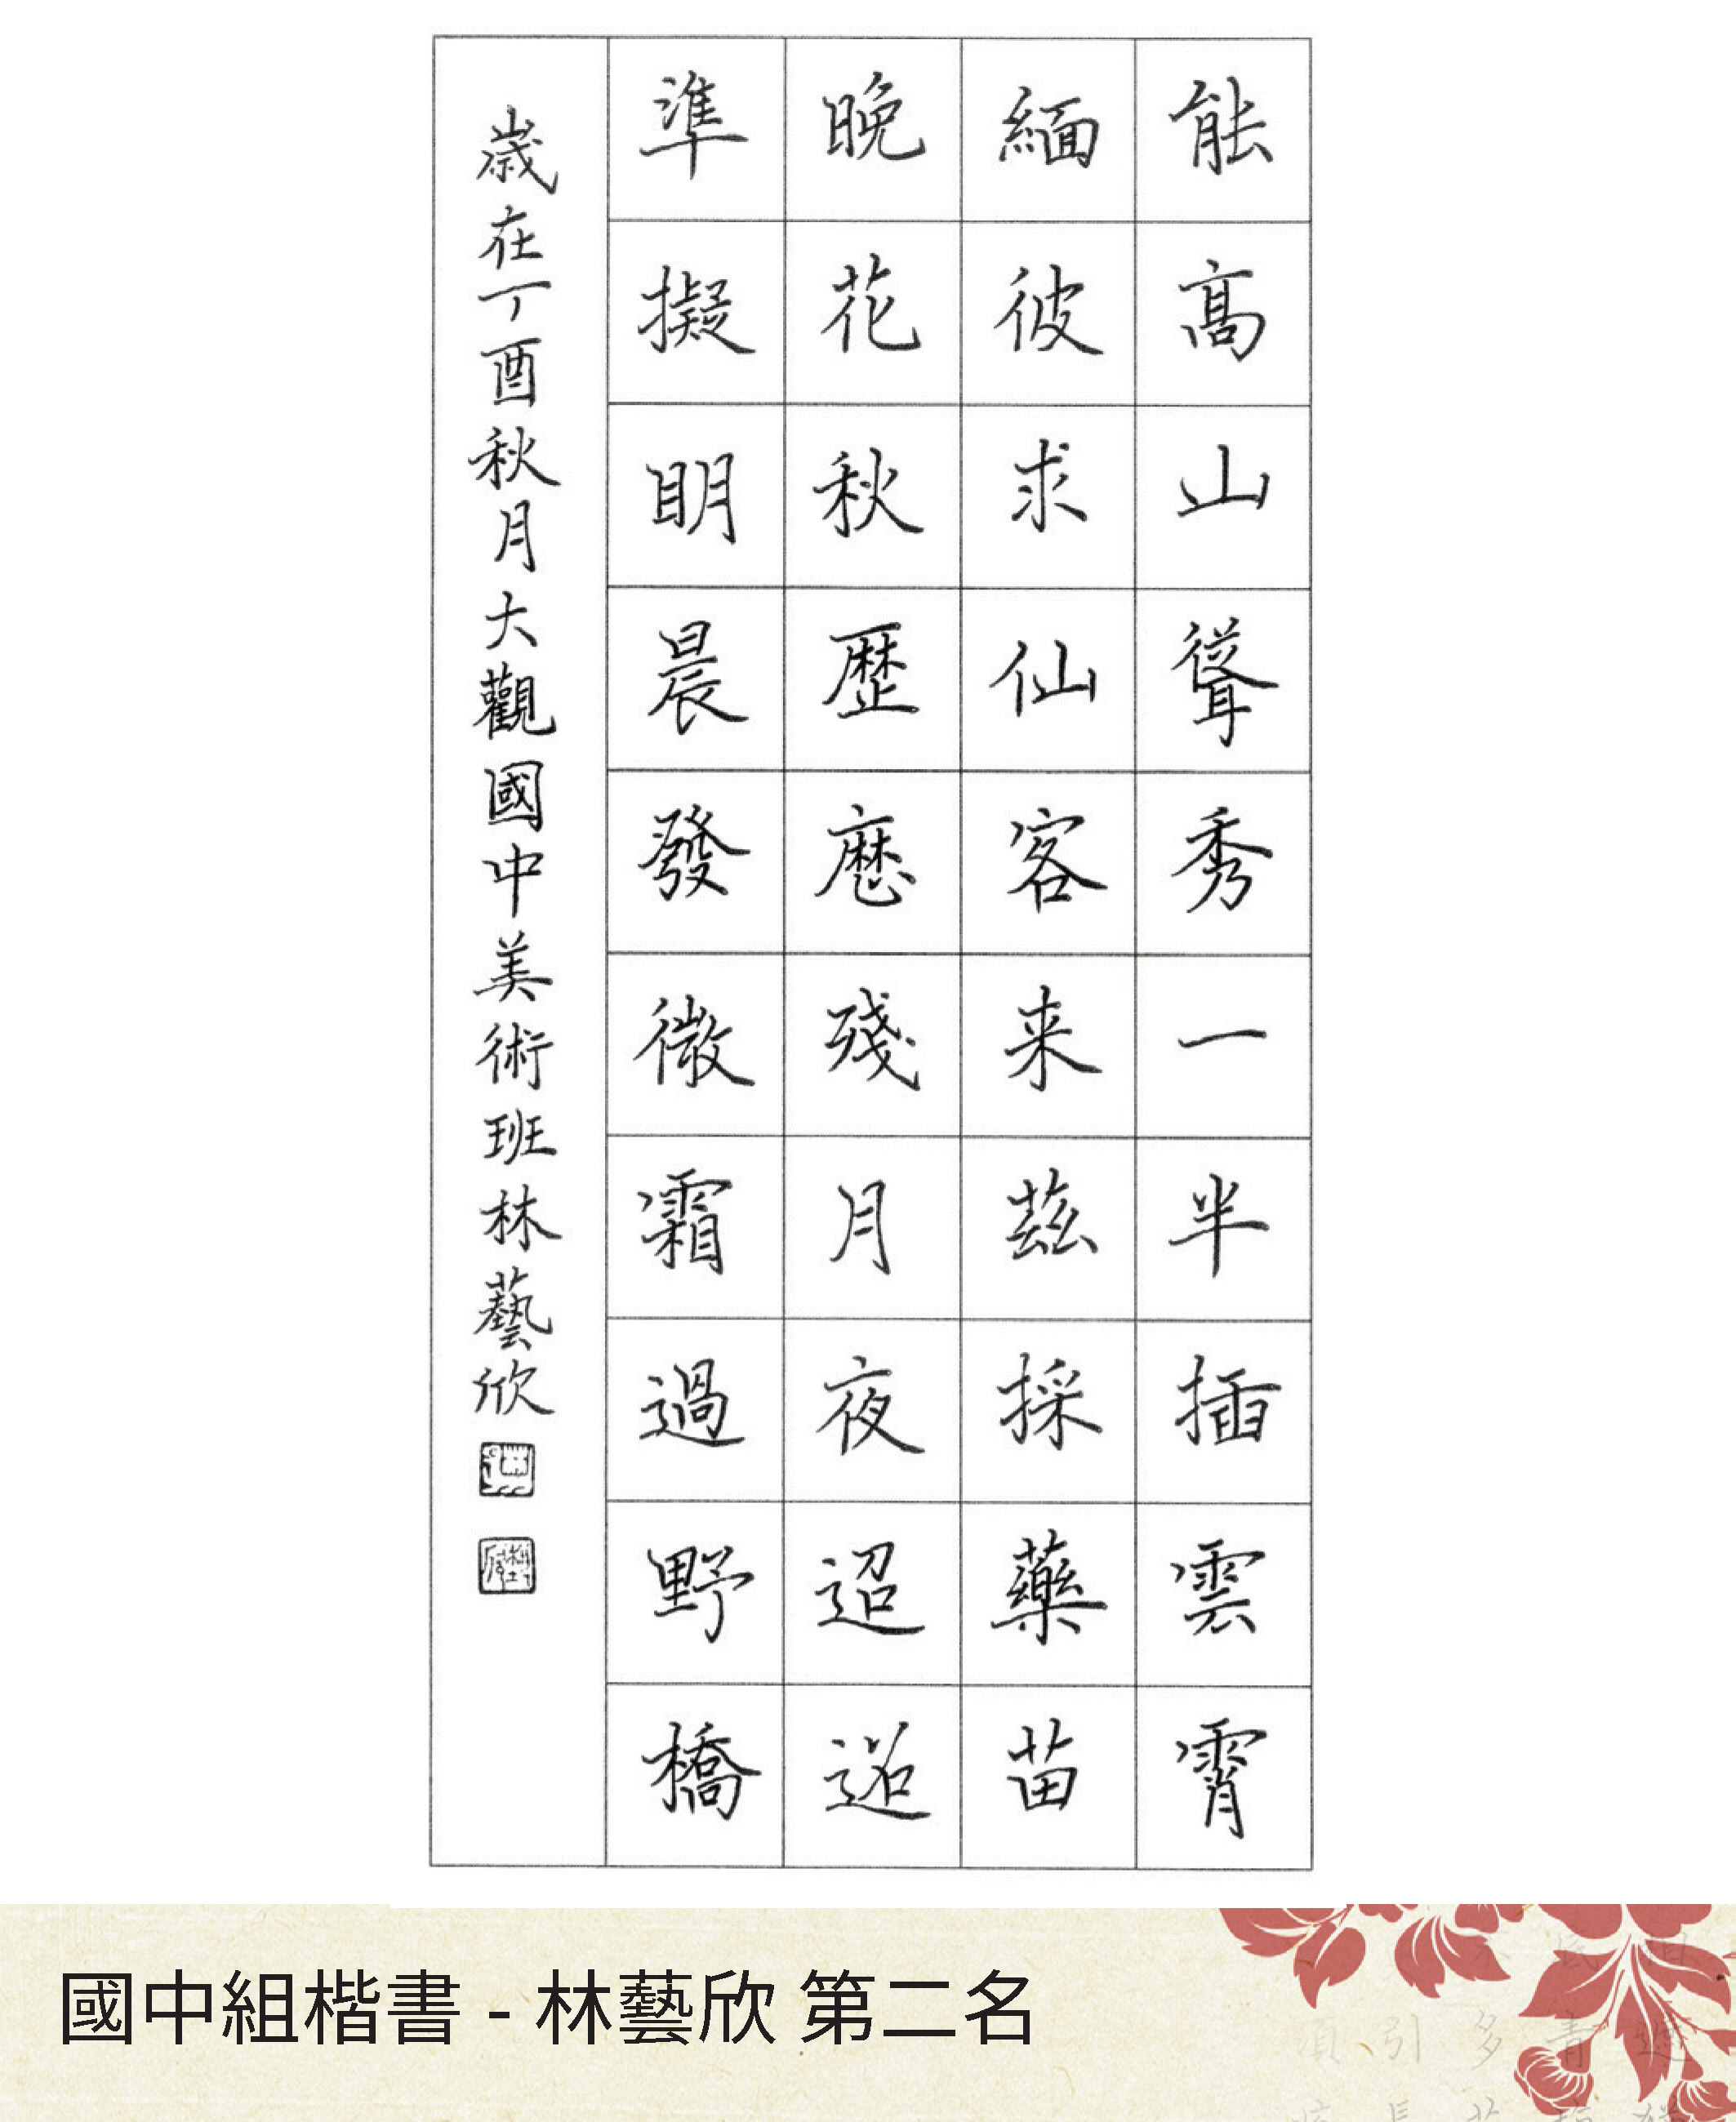 能高山聳秀一半插雲霄
緬彼求仙客来茲採藥苗
晚花秋歷歷殘月夜迢迢
準擬明晨發微霜過野橋
歲在丁酉秋月大觀國中美術班林藝欣
國中組楷書 - 林藝欣 第二名